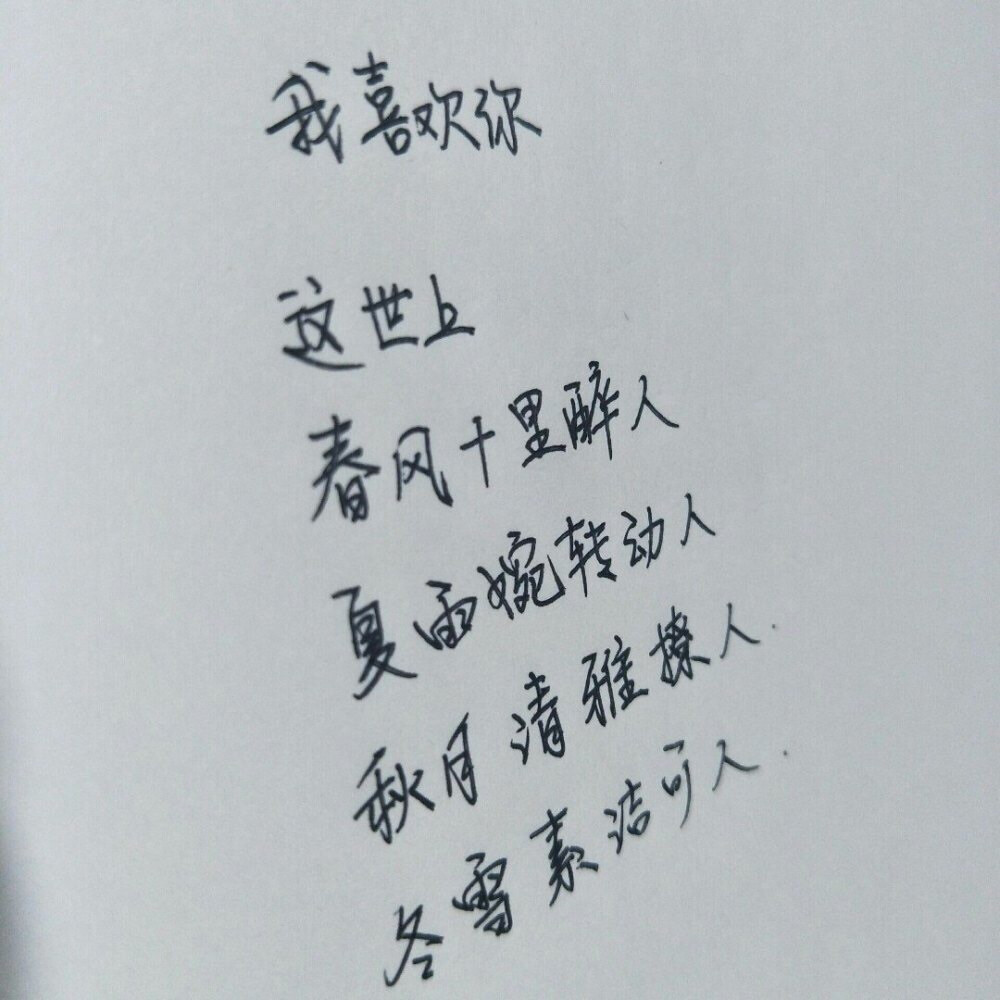 我喜欢你
这世上
春风十里醉人
夏雨婉转动人
秋月清雅撩人.
冬雪素洁可人.